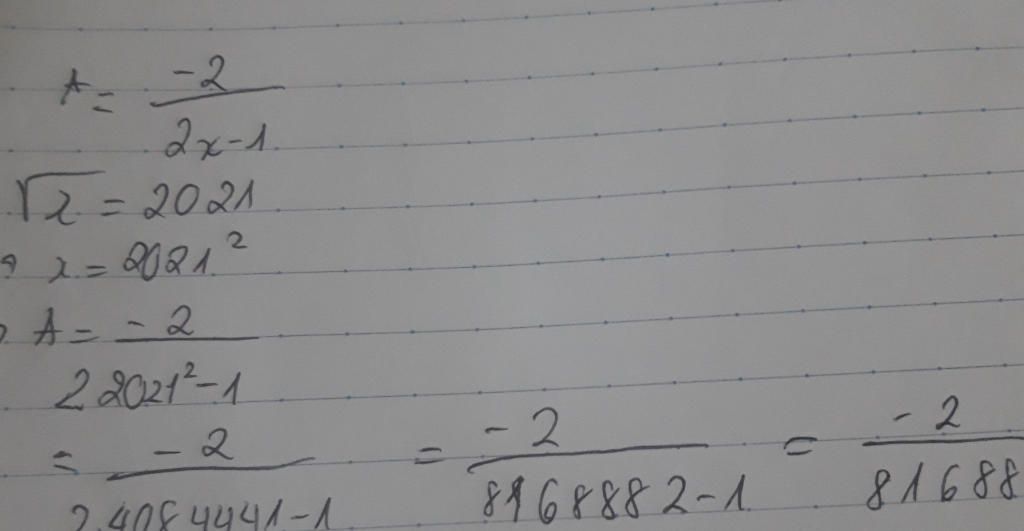 A = -2 / 2x-1
√x = 2021
x = 2021²
A = -2 / 2 2021²-1
= -2 / 2.4084441-1 = -2 / 8168882-1 = -2 / 81688